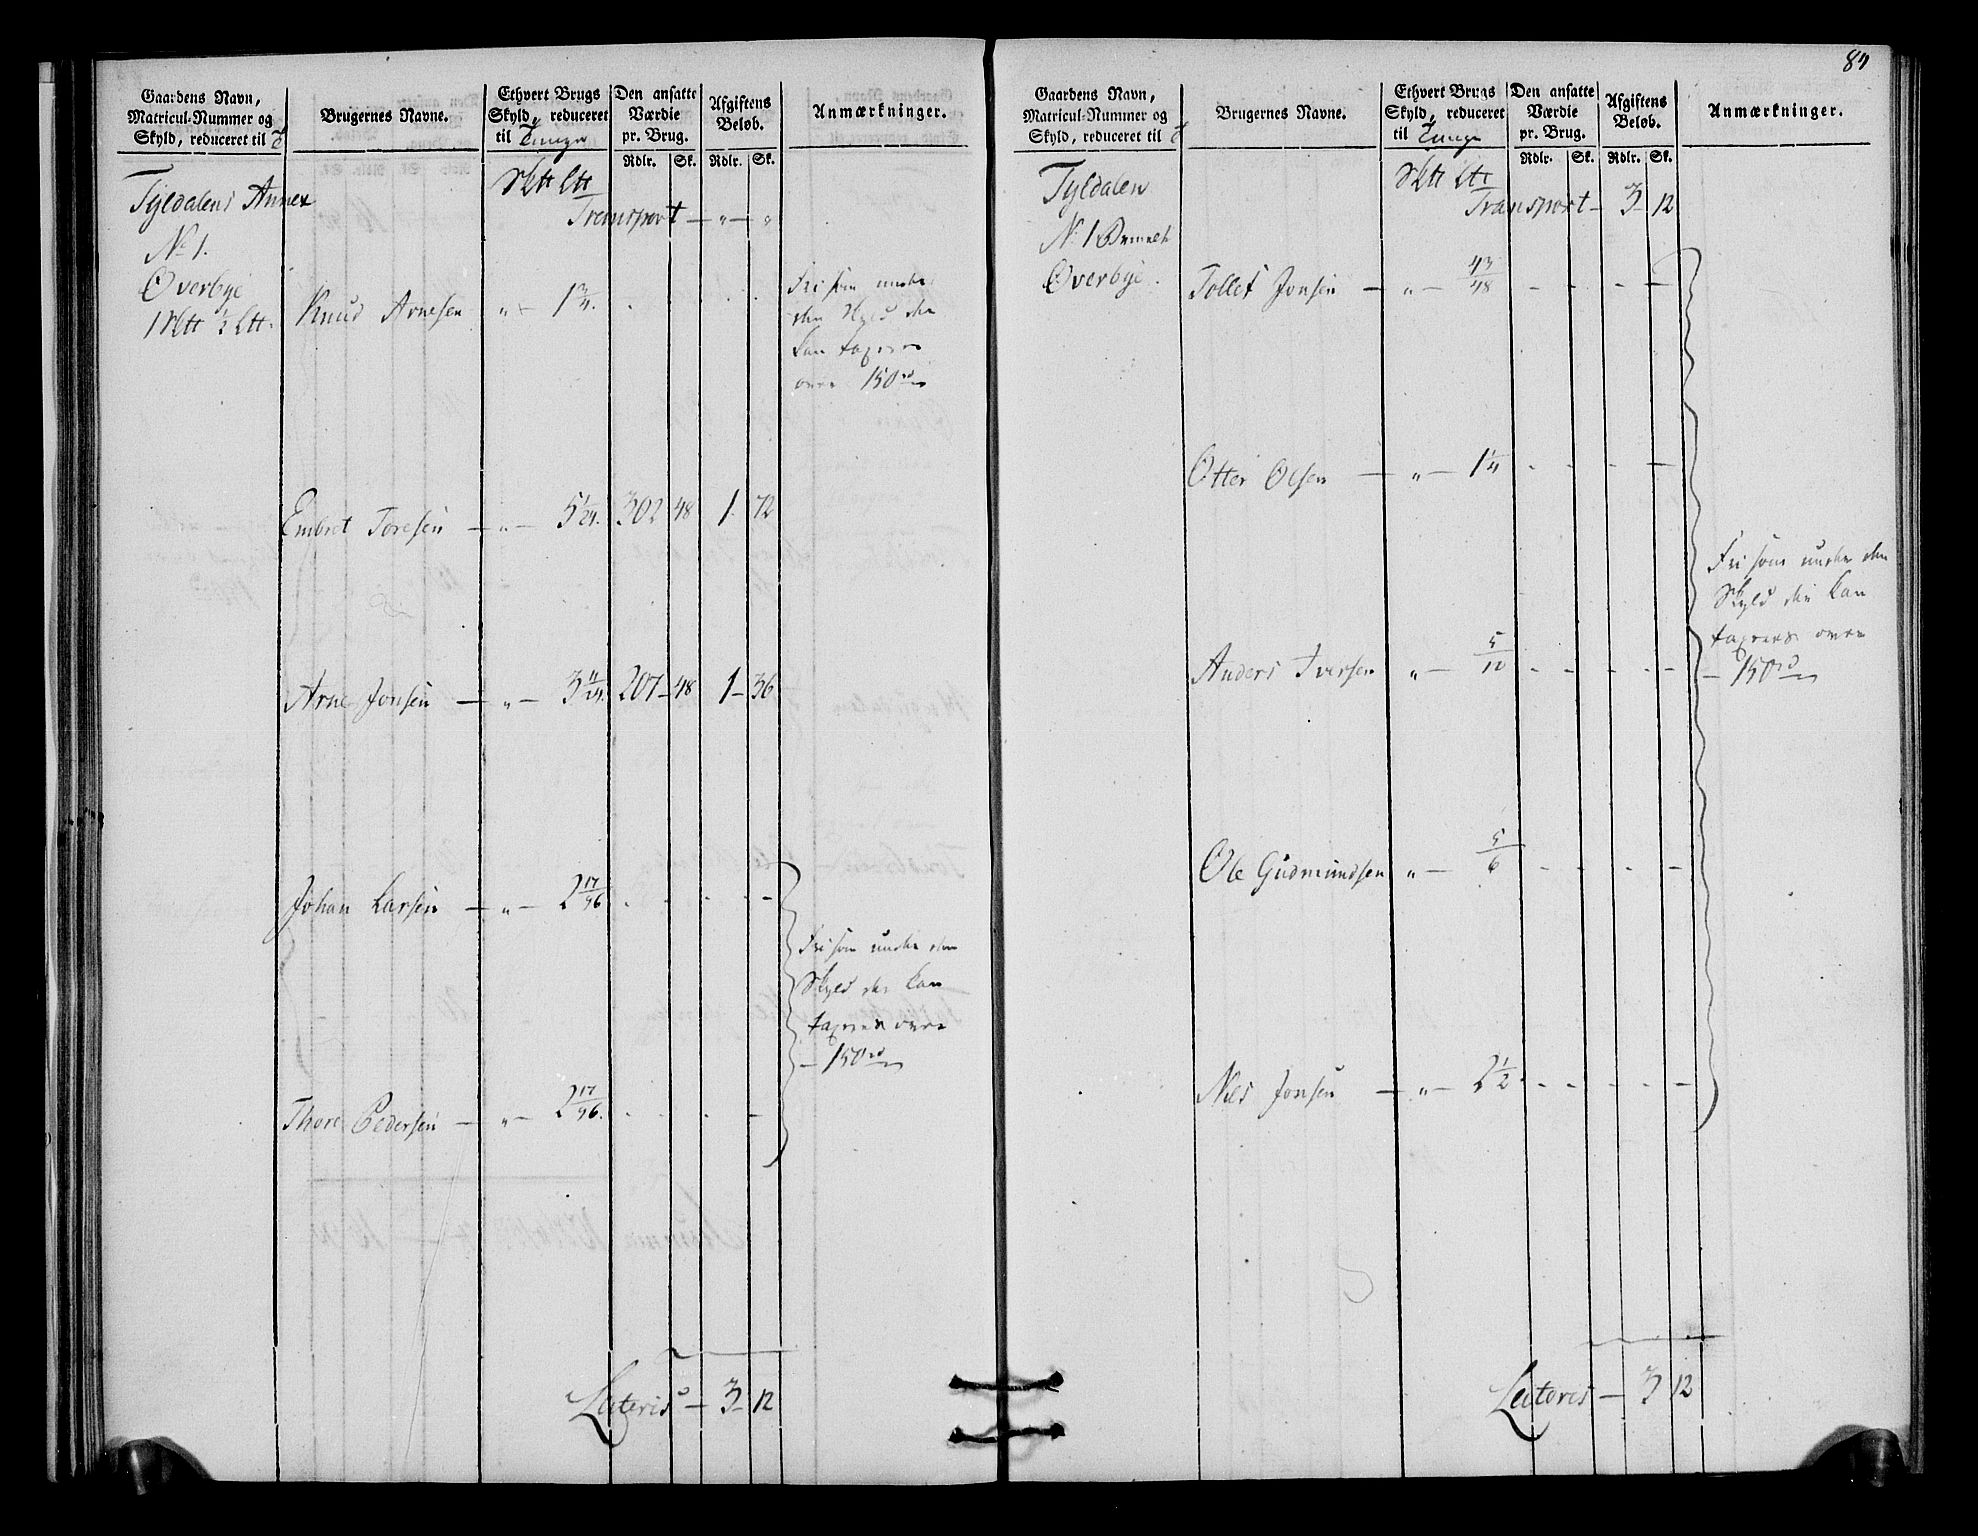 84
Gaardens Navn,
Matricul-Nummer og
Skyld, reduceret til
Brugernes Navne.
Ethvert Brugs
Skyld, reduceret
til Tunge
Den ansatte
Værdie
pr. Brug.
Rdlr. Sk.
Afgiftens
Beløb.
Rdlr. Sk.
Anmærkninger.
Tyldalens Annex
Transport — „ — „
No 1.
Overbye
Knud Arnesen „ — 1 3/4.
Fri som under
den Skyld der
kan taxeres
over 150 rd
Embret Toresen — „ — 5 1/24. 302 48 1. 72
Arne Jonsen — „ — 3 11/24. 207 — 48 1 — 36
Johan Larsen — „ — 2 17/96
Fri som under den
Skyld der kan
taxeres over
— 150 rd
Thore Pedersen — „ — 2 17/96.
Lateris — 3 — 12
Gaardens Navn,
Matricul-Nummer og
Skyld, reduceret til
Brugernes Navne.
Ethvert Brugs
Skyld, reduceret
til Tunge
Den ansatte
Værdie
pr. Brug.
Rdlr. Sk.
Afgiftens
Beløb.
Rdlr. Sk.
Anmærkninger.
Tyldalen
Transport — 3 12
No 1
Overbye.
Tollef Jonsen — „ — 43/48
Otter Olsen — „ — 1 1/4
Fri som under den
Skyld der kan
taxeres over
— 150 rd
Anders Iversen „ — 5/12
Ole Gudmundsen „ — 5/6
Nils Jonsen — „ — 2 1/2
Lateris — 3 12